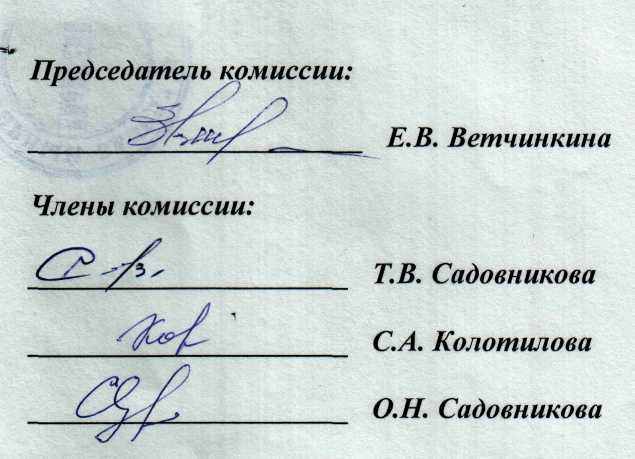 Председатель комиссии:
Е.В. Ветчинкина
Члены комиссии:
Т.В. Садовникова
С.А. Колотилова
О.Н. Садовникова